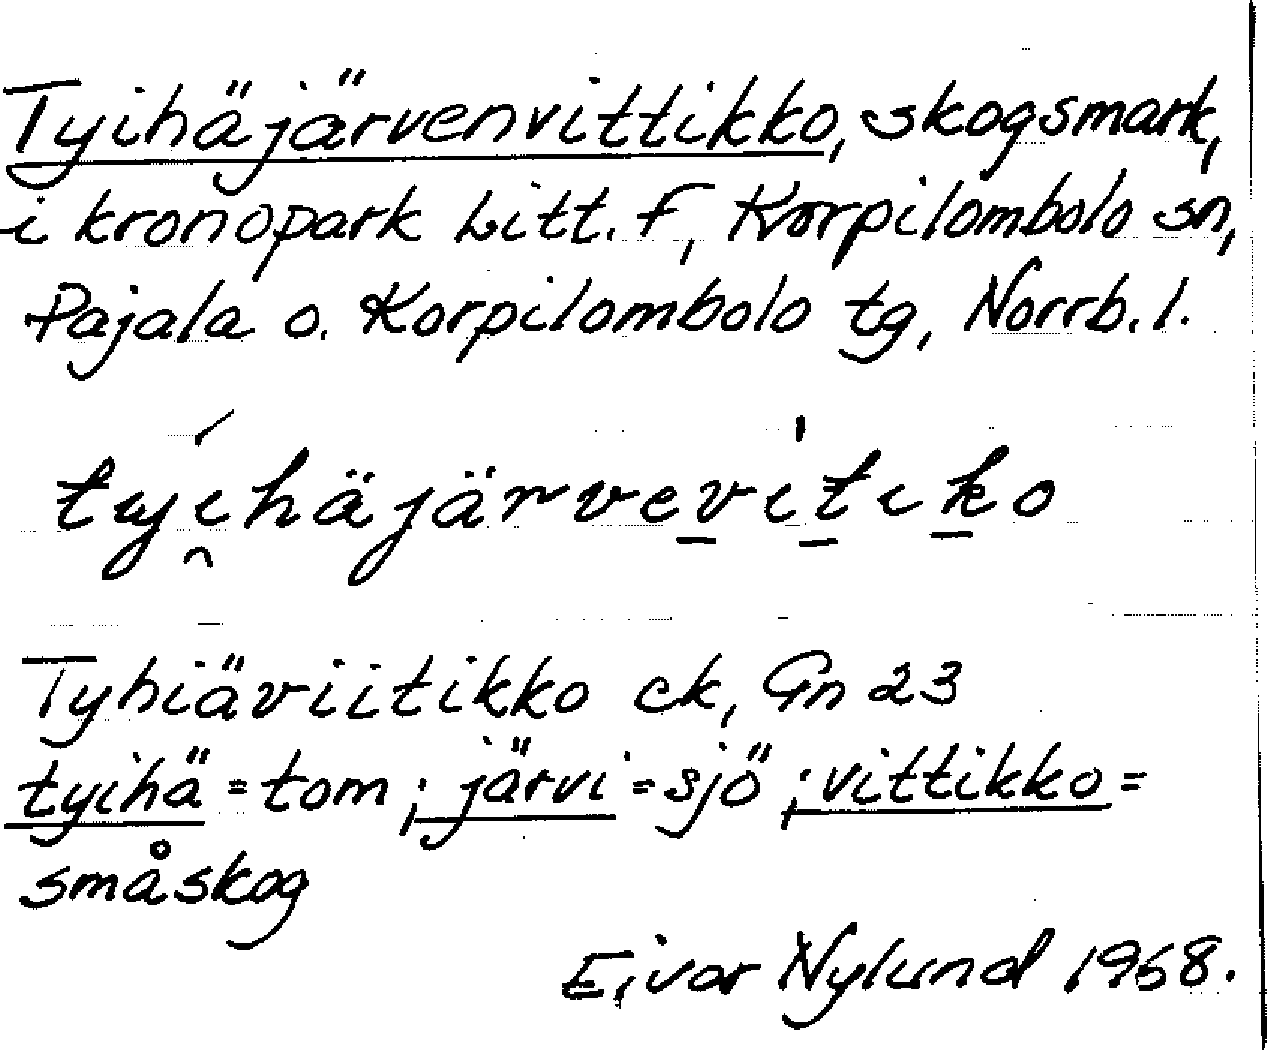 Tyihäjärvenvittikko, skogsmark,
i kronopark Litt. F, Korpilombolo sn,
Pajala o. Korpilombolo tg, Norrb. l.
tyi̯häjärvev̲it̲ik̲o
Tyhiäviitikko ek, Gn 23
tyihä = tom ; järvi = sjö ; vittikko =
småskog
Eivor Nylund 1968.